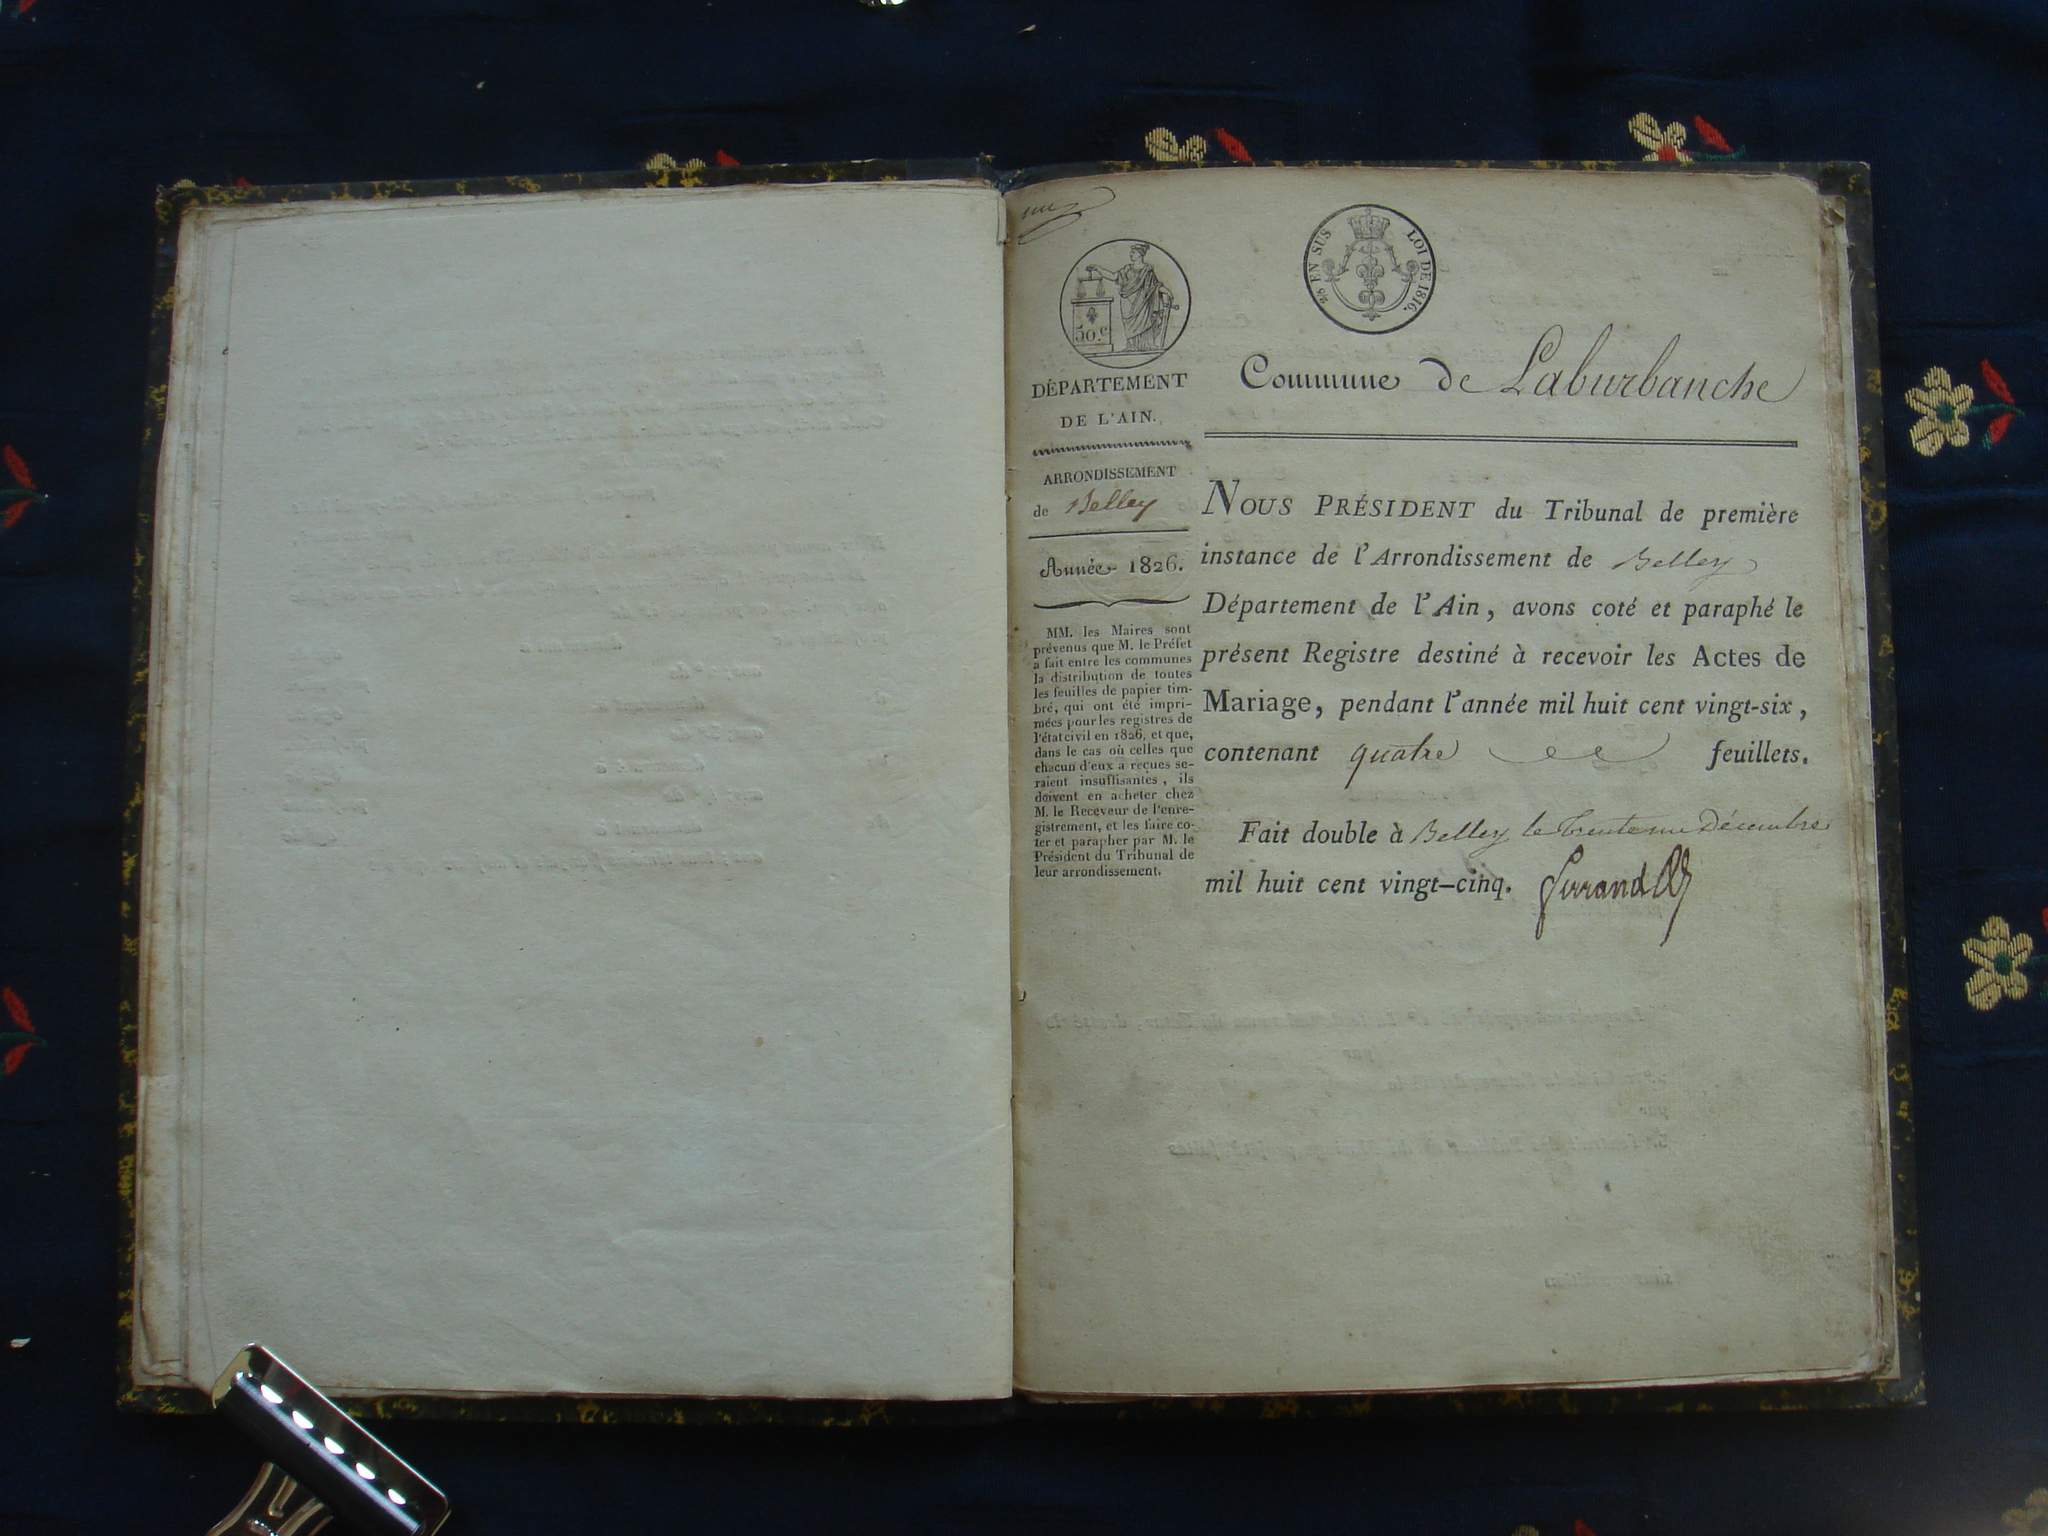 50.c
EN SUS
LOI DE 1816.
DÉPARTEMENT
DE L'AIN.
ARRONDISSEMENT
de Belley
Année 1826.
MM. les Maires sont
prévenus que M. le Préfet
a fait entre les communes
la distribution de toutes
les feuilles de papier tim-
bré, qui ont été impri-
mées pour les registres de
l'état civil en 1826, et que,
dans le cas où celles que
chacun d'eux a reçues se-
raient insuffisantes, ils
doivent en acheter chez
M. le Receveur de l'enre-
gistrement, et les faire co-
ter et parapher par M. le
Président du Tribunal de
leur arrondissement.
Commune de Laburbanche
NOUS PRÉSIDENT du Tribunal de première
instance de l'Arrondissement de Belley
Département de l'Ain, avons coté et paraphé le
présent Registre destiné à recevoir les Actes de
Mariage, pendant l'année mil huit cent vingt-six,
contenant quatre feuillets.
Fait double à Belley le trente un Décembre
mil huit cent vingt-cinq.